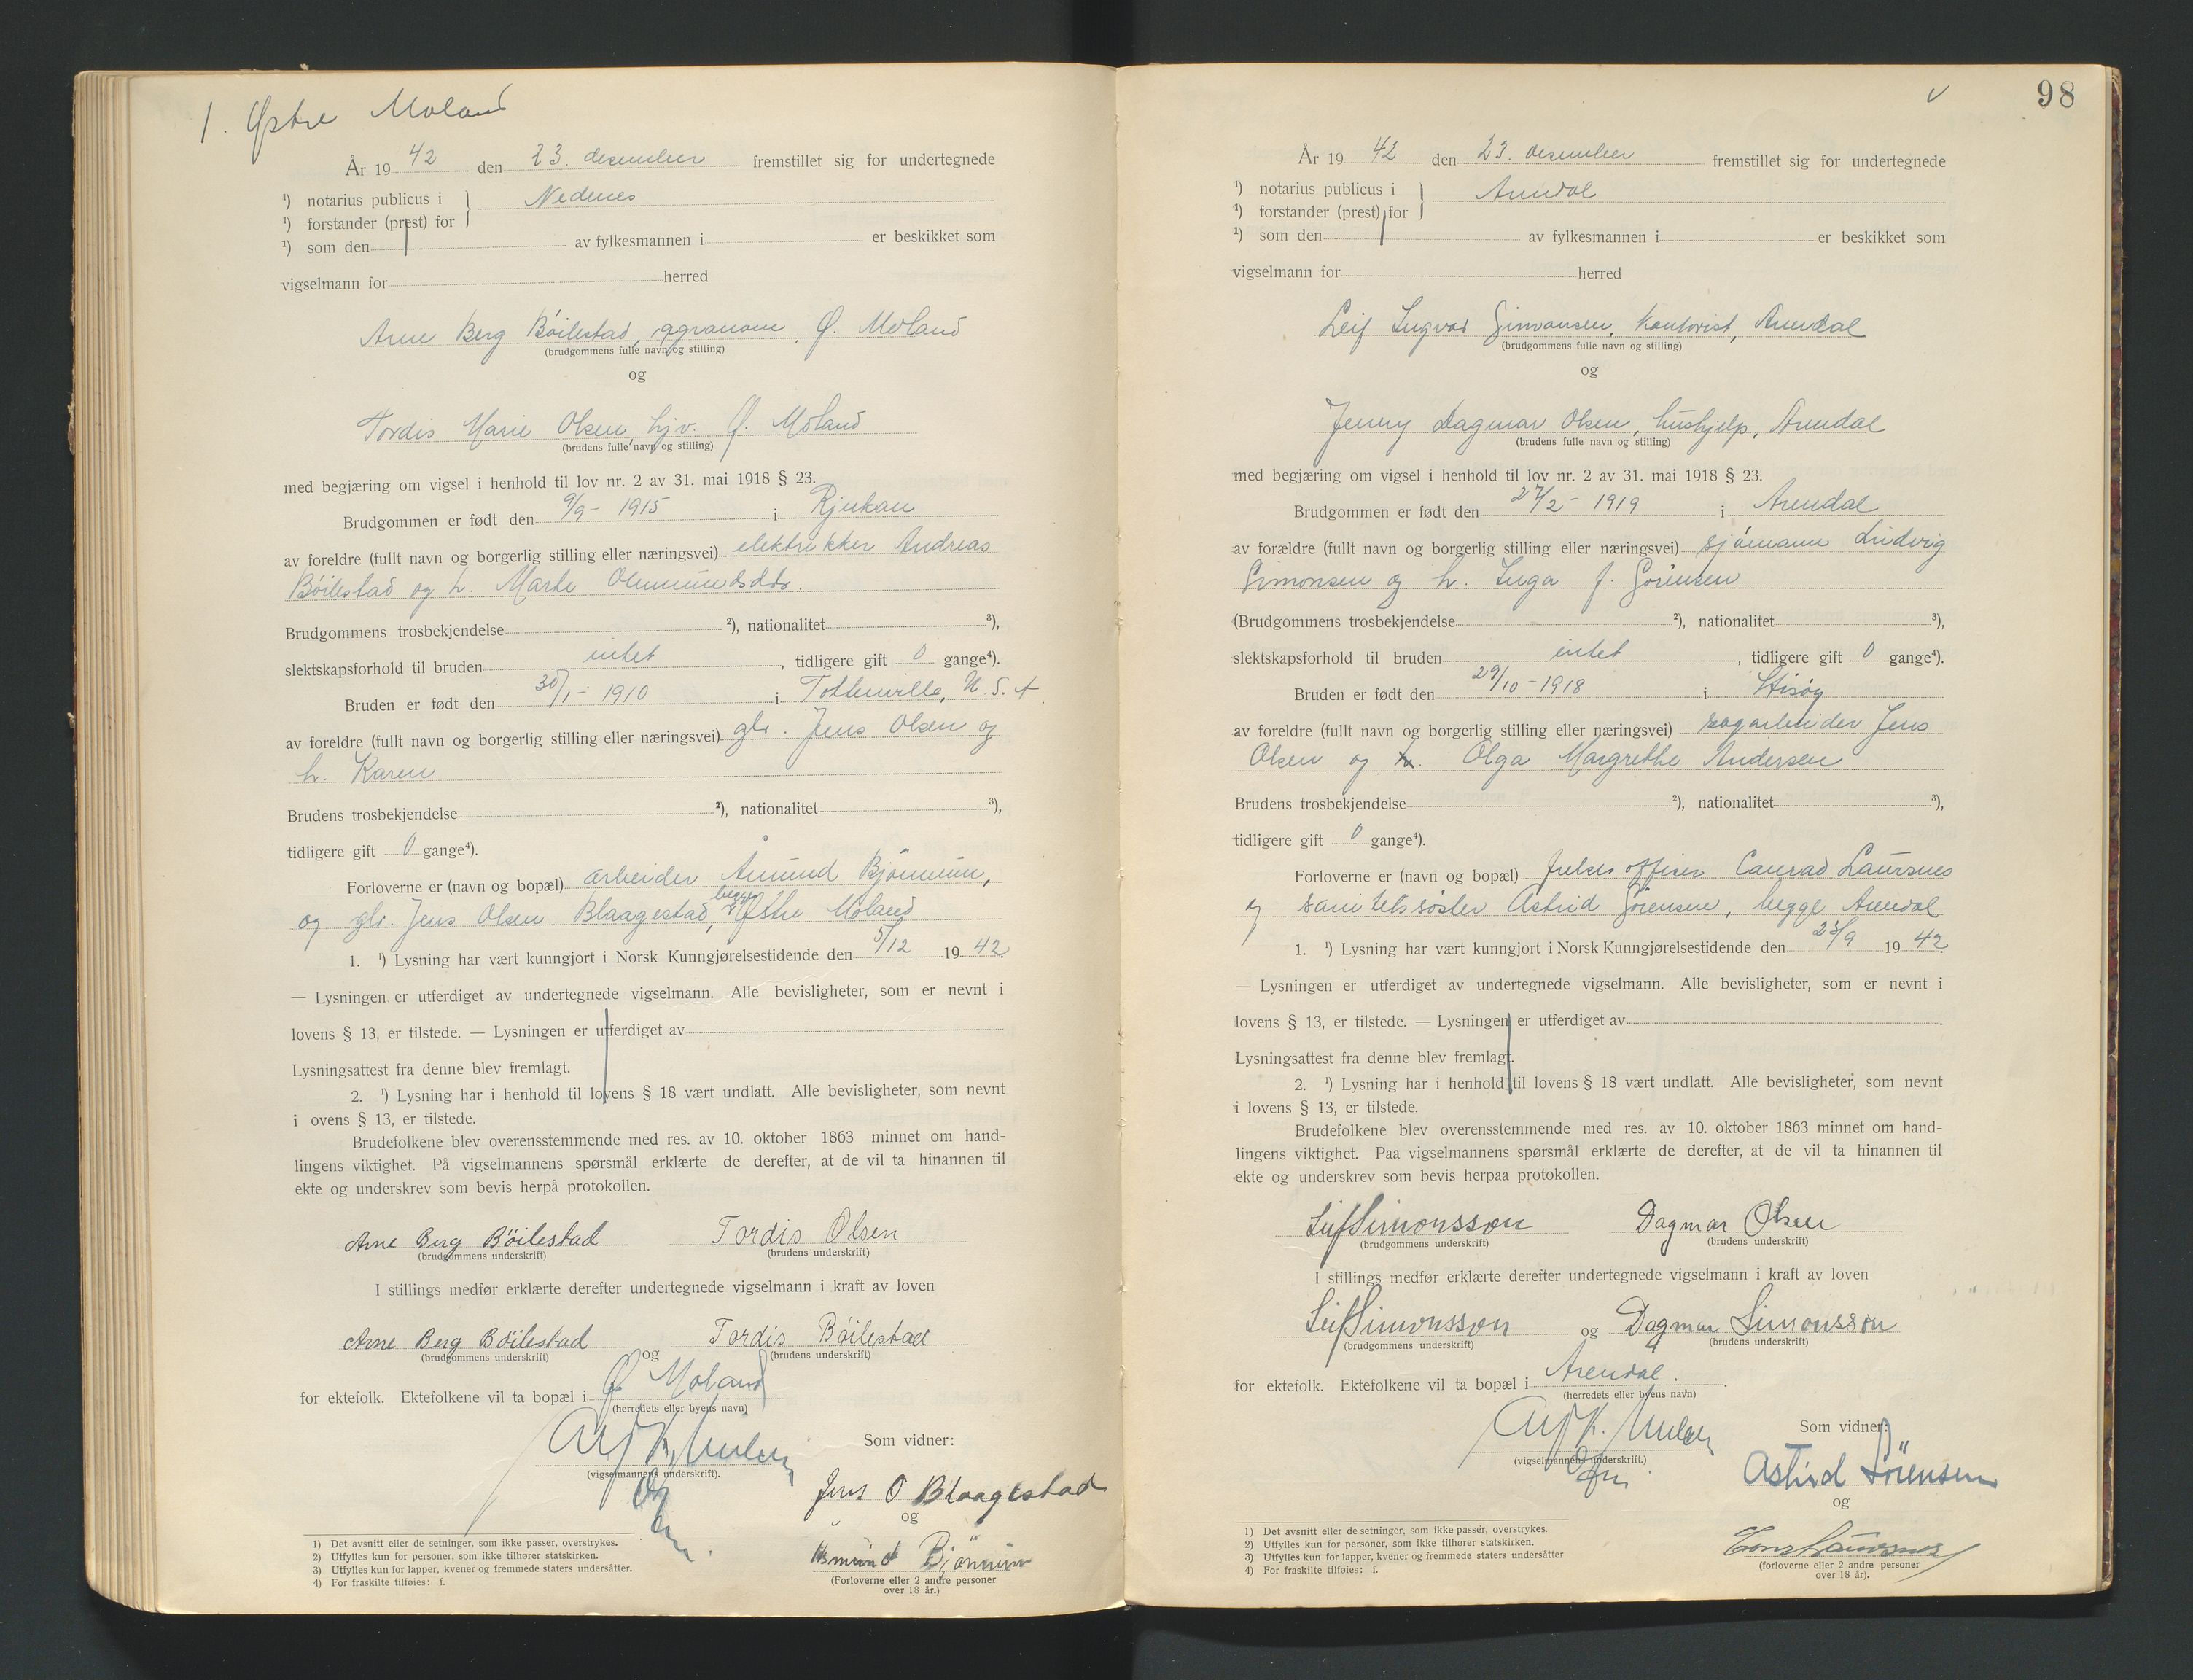 1. Østre Moland
År 19 42 den 23. desember fremstillet sig for undertegnede
¹) notarius publicus i } Nedenes
¹) forstander (prest) for
¹) som den av fylkesmannen i er beskikket som
vigselmann for herred
Arne Berg Böilestad, agronom, Ø. Moland
(brudgommens fulle navn og stilling)
og
Tordis Marie Olsen, hjv. Ø. Moland
(brudens fulle navn og stilling)
med begjæring om vigsel i henhold til lov nr. 2 av 31. mai 1918 § 23.
Brudgommen er født den 9/9 - 1915 i Rjukan
av foreldre (fullt navn og borgerlig stilling eller næringsvei) elektrikker Andreas
Böilestad og h. Marte
Brudgommens trosbekjendelse ²), nationalitet ³),
slektskapsforhold til bruden intet , tidligere gift 0 gange⁴).
Bruden er født den 30/1 - 1910 i Tottenville, U.S.A
av foreldre (fullt navn og borgerlig stilling eller næringsvei) gbr. Jens Olsen og
h. Karen
Brudens trosbekjendelse ²), nationalitet ³),
tidligere gift 0 gange⁴).
Forloverne er (navn og bopæl) arbeider Åmund Bjönnum,
og gbr. Jens Olsen Blaagestad, begge Østre Moland
1. ¹) Lysning har vært kunngjort i Norsk Kunngjørelsestidende den 5/12 19 42.
— Lysningen er utferdiget av undertegnede vigselmann. Alle bevisligheter, som er nevnt i
lovens § 13, er tilstede. — Lysningen er utferdiget av
Lysningsattest fra denne blev fremlagt.
2. ¹) Lysning har i henhold til lovens § 18 vært undlatt. Alle bevisligheter, som nevnt
i ovens § 13, er tilstede.
Brudefolkene blev overensstemmende med res. av 10. oktober 1863 minnet om hand-
lingens viktighet. På vigselmannens spørsmål erklærte de derefter, at de vil ta hinannen til
ekte og underskrev som bevis herpå protokollen.
Arne Berg Böilestad Tordis Olsen
(brudgommens underskrift) (brudens underskrift)
I stillings medfør erklærte derefter undertegnede vigselmann i kraft av loven
Arne Berg Böilestad og Tordis Böilestad
(brudgommens underskrift) (brudens underskrift)
for ektefolk. Ektefolkene vil ta bopæl i Ø. Moland
(herredets eller byens navn)
Som vidner:
(vigselmannens underskrift).
Jens O Blaagestad
og
Åmund Bjönnum
(Forloverne eller 2 andre personer
over 18 år.)
1) Det avsnitt eller de setninger, som ikke passer, overstrykes.
2) Utfylles kun for personer, som ikke tilhører statskirken.
3) Utfylles kun for lapper, kvener og fremmede staters undersåtter.
4) For fraskilte tilføies: f.
98
År 19 42 den 23. desember fremstillet sig for undertegnede
¹) notarius publicus i } Arendal
¹) forstander (prest) for
¹) som den av fylkesmannen i er beskikket som
vigselmann for herred
Leif Ingvar Simonsen, kontorist, Arendal
(brudgommens fulle navn og stilling)
og
Jenny Dagmar Olsen, hushjelp, Arendal
(brudens fulle navn og stilling)
med begjæring om vigsel i henhold til lov nr. 2 av 31. mai 1918 § 23.
Brudgommen er født den 27/2 - 1919 i Arendal
av forældre (fullt navn og borgerlig stilling eller næringsvei) sjömann Ludvig
Simonsen og h. Inga f. Sörensen
(Brudgommens trosbekjendelse ²), nationalitet ³),
slektskapsforhold til bruden intet , tidligere gift 0 gange⁴).
Bruden er født den 29/10 - 1918 i Hisöy
av foreldre (fullt navn og borgerlig stilling eller næringsvei) sagarbeider Jens
Olsen og h. Olga Margrethe Andersen
Brudens trosbekjendelse ²), nationalitet ³),
tidligere gift 0 gange⁴).
Forloverne er (navn og bopæl) frelsesoffiser Conrad Laursnes
og sanitetssöster Astrid Sörensen, begge Arendal
1. ¹) Lysning har vært kunngjort i Norsk Kunngjørelsestidende den 23/9 19 42.
— Lysningen er utferdiget av undertegnede vigselmann. Alle bevisligheter, som er nevnt i
lovens § 13, er tilstede. — Lysningen er utferdiget av .
Lysningsattest fra denne blev fremlagt.
2. ¹) Lysning har i henhold til lovens § 18 vært undlatt. Alle bevisligheter, som nevnt
i lovens § 13, er tilstede.
Brudefolkene blev overensstemmende med res. av 10. oktober 1863 minnet om hand-
lingens viktighet. Paa vigselmannens spørsmål erklærte de derefter, at de vil ta hinannen til
ekte og underskrev som bevis herpaa protokollen.
Leif Simonsson Dagmar Olsen
(brudgommens underskrift) (brudens underskrift)
I stillings medfør erklærte derefter undertegnede vigselmann i kraft av loven
Leif Simonsson og Dagmar Simonsson
(brudgommens underskrift) (brudens underskrift)
for ektefolk. Ektefolkene vil ta bopæl i Arendal.
(herredets eller byens navn)
Som vidner:
(vigselmannens underskrift.)
Astrid Sörensen
og
(forloverne eller 2 andre personer
over 18 år).
1) Det avsnitt eller de setninger, som ikke passer, overstrykes.
2) Utfylles kun for personer, som ikke tilhører statskirken.
3) Utfylles kun for lapper, kvener og fremmede staters undersåtter
4) For fraskilte tilføies: f.